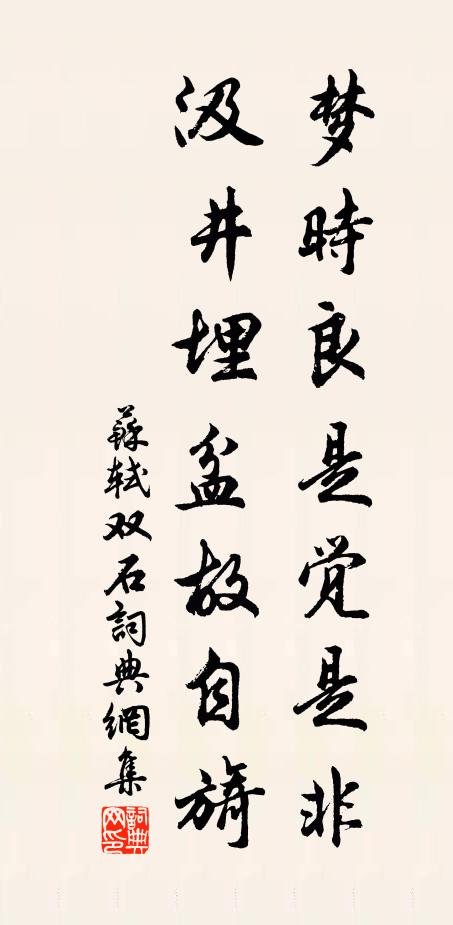 梦時良是觉是非
汲井埋盆故自
蘇轼双石詞典網集
詞典
网印